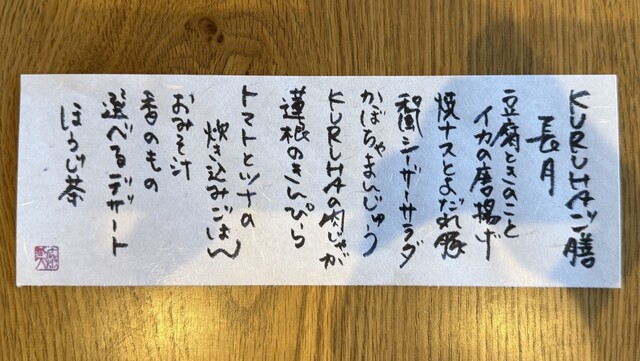 KURUHAご膳
長月
豆腐ときのこと
イカの唐揚げ
焼ナスとよだれ豚
和風シーザーサラダ
かぼちゃまんじゅう
KURUHAの肉じゃが
蓮根のきんぴら
トマトとツナの
炊き込みごはん
おみそ汁
香のもの
選べるデザート
ほうじ茶